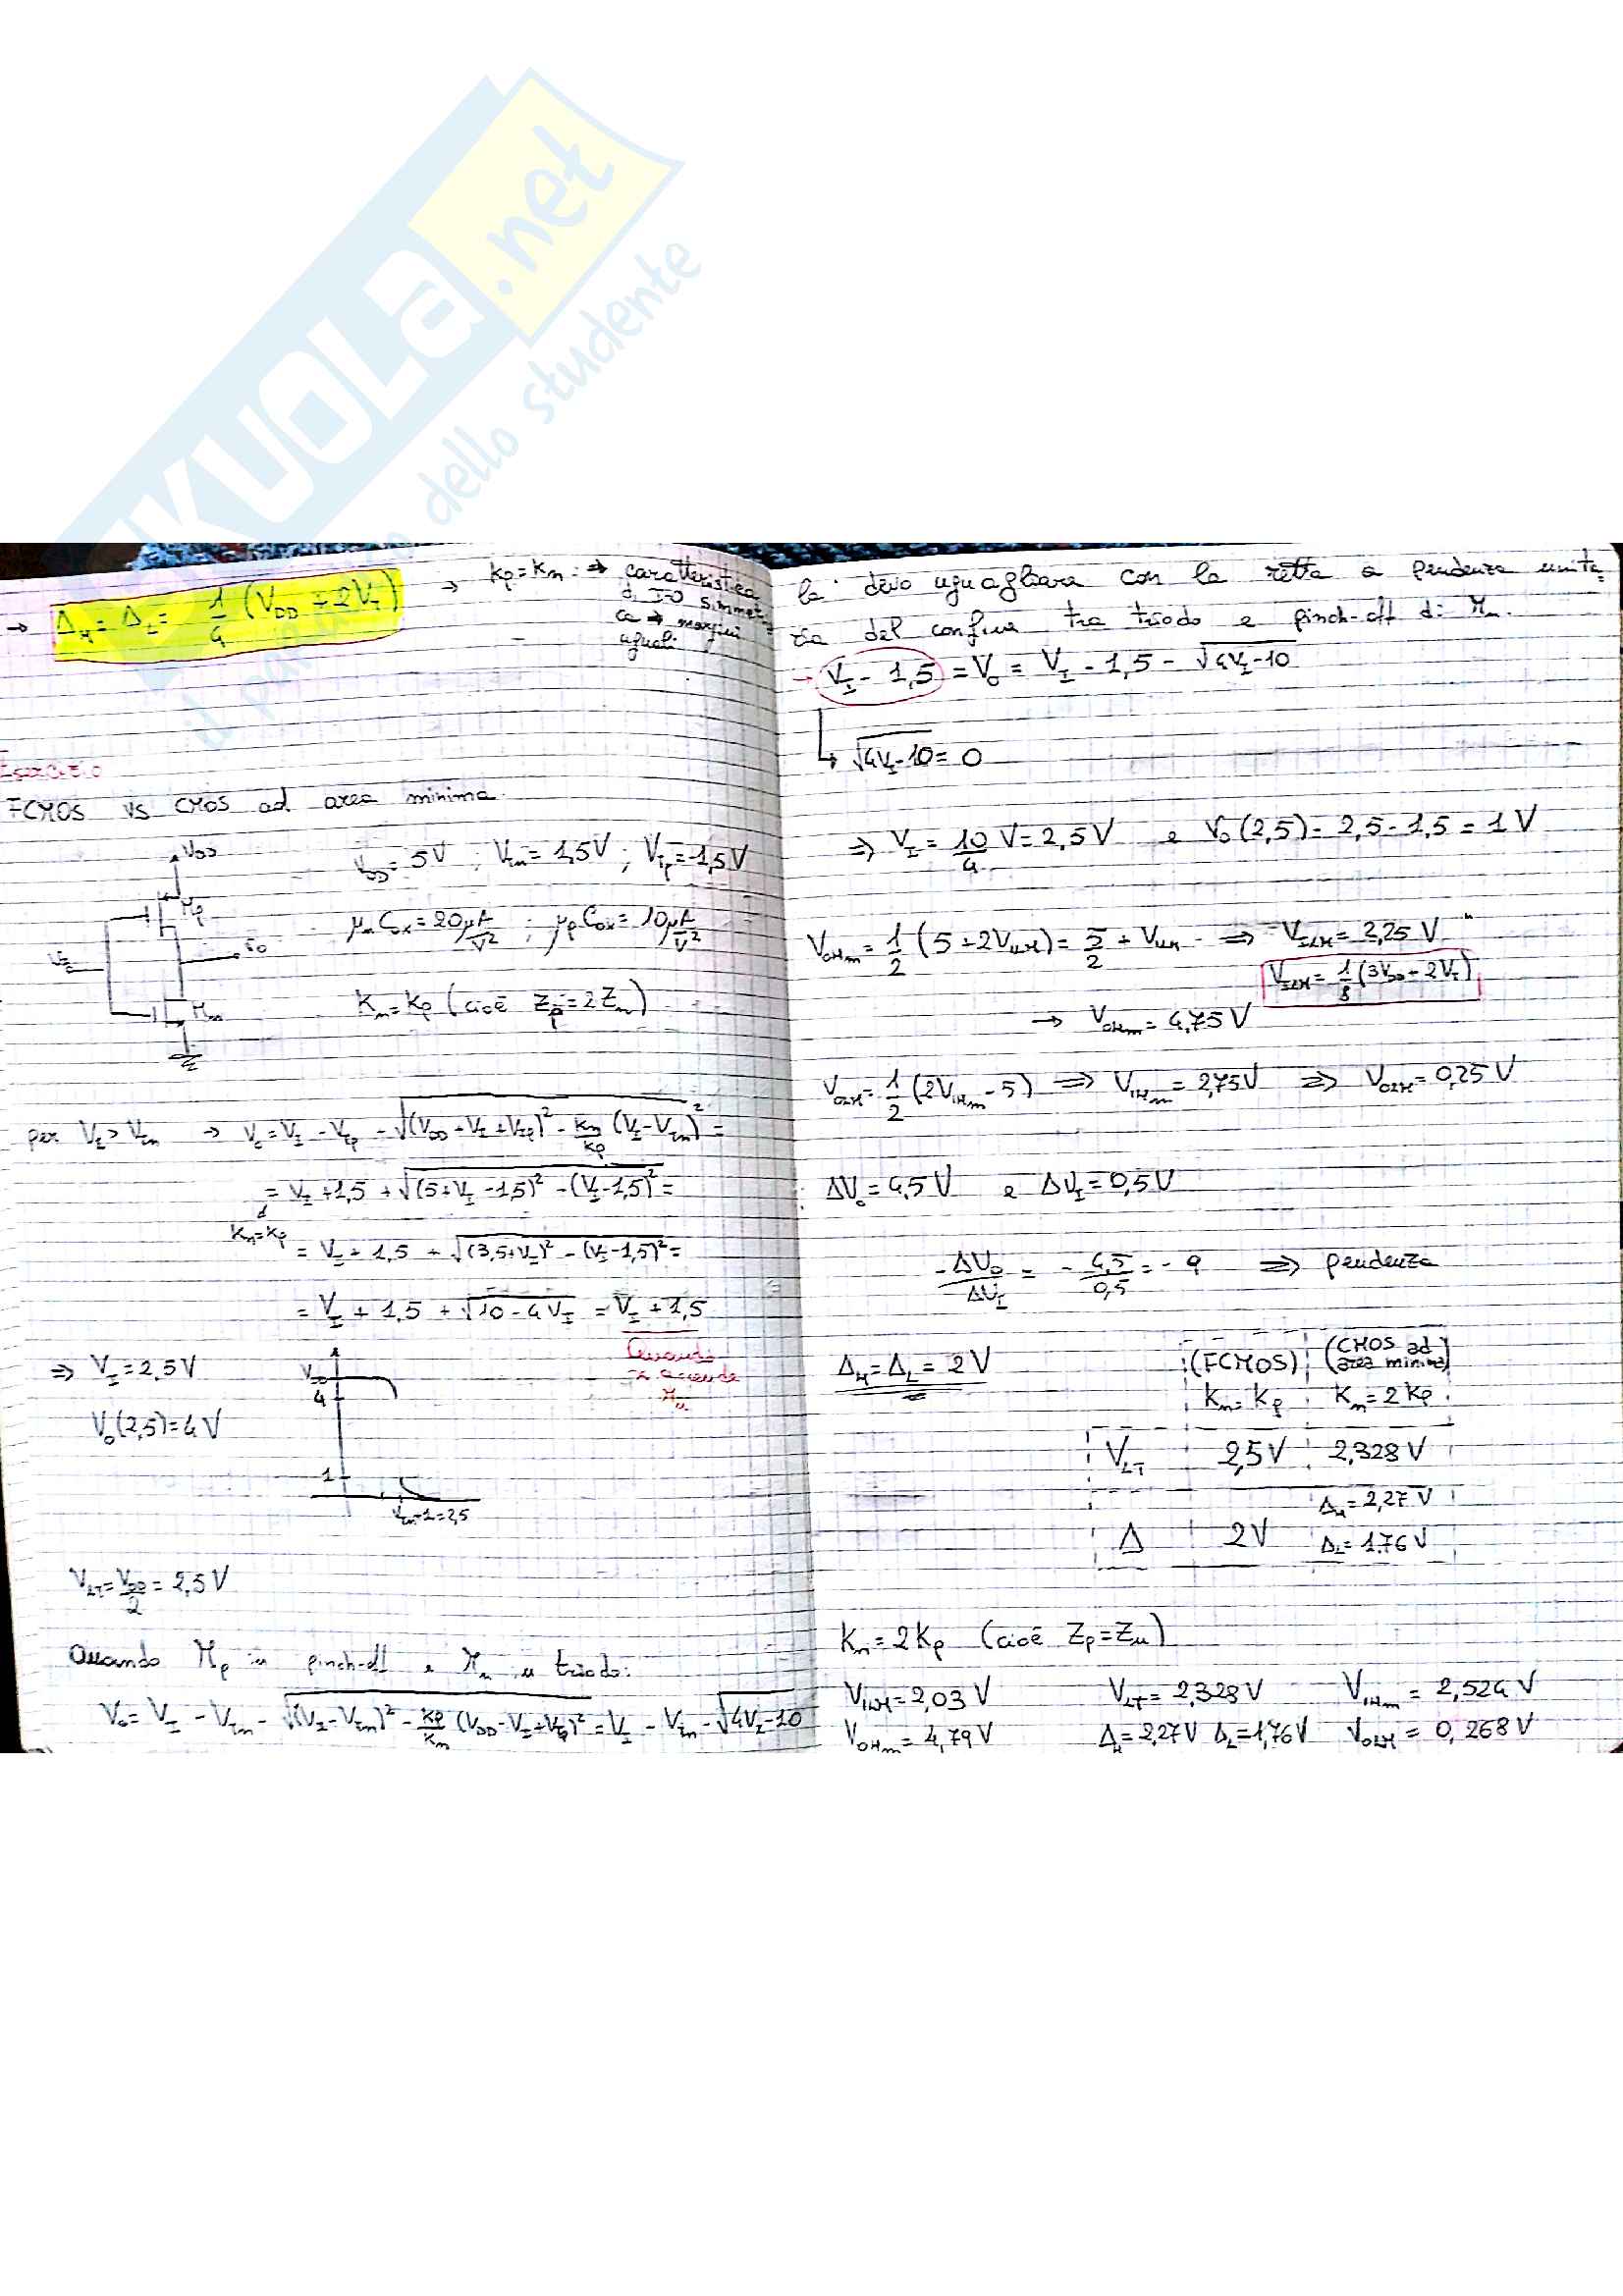 SKUOLA.net
il paradiso dello studente
→ Δ_H = Δ_L = 1/4 (V_DD + 2V_T) → kp = kn ⇒ caratteristica
di I=0 simmetri
ca ⇒ margini
uguali
Esercizio
FCMOS vs CMOS ad area minima
V_DD
V_DD = 5V ; V_Tn = 1,5V ; V_Tp = -1,5V
Mp
μnCox = 20 μA/V² ; μpCox = 10 μA/V²
Mn
Kn = Kp (cioè Zp = 2Zn)
per V_I > V_Tn → V_o = V_I - V_Tp - √((V_DD + V_I + V_Tp)² - kn/kp (V_I - V_Tn)²) =
= V_I + 1,5 + √((5+V_I - 1,5)² - (V_I - 1,5)²) =
Kn = Kp
= V_I + 1,5 + √((3,5+V_I)² - (V_I - 1,5)²) =
= V_I + 1,5 + √(10 - 4V_I) = V_I + 1,5
⇒ V_I = 2,5V
V_DD
4
V_o(2,5) = 4V
1
V_Tn+1=2,5
V_LT = V_DD/2 = 2,5V
Quando Mp in pinch-off e Mn in triodo:
V_o = V_I - V_Tn - √((V_I - V_Tn)² - kp/kn (V_DD - V_I + V_Tp)²) = V_I - V_Tn - √(4V_I - 10)
la devo uguagliare con la retta a pendenza unita-
ria del confine tra triodo e pinch-off di Mn.
→ V_I - 1,5 = V_o = V_I - 1,5 - √(4V_I - 10)
↳ √(4V_I - 10) = 0
⇒ V_I = 10/4 V = 2,5V e V_o(2,5) = 2,5 - 1,5 = 1V
V_OHm = 1/2 (5 + 2V_ILM) = 5/2 + V_ILM ⇒ V_ILM = 2,25V
V_ILM = 1/8 (3V_DD + 2V_T)
→ V_OHm = 4,75V
V_OLM = 1/2 (2V_IHm - 5) ⇒ V_IHm = 2,75V ⇒ V_OLM = 0,25V
ΔV_o = 4,5V e ΔV_I = 0,5V
-ΔV_o/ΔV_I = -4,5/0,5 = -9 ⇒ pendenza
Δ_H = Δ_L = 2V
(FCMOS) (CMOS ad area minima)
Kn = Kp Kn = 2Kp
V_LT 2,5V 2,328V
Δ 2V Δ_H = 2,27V
Δ_L = 1,76V
Kn = 2Kp (cioè Zp = Zn)
V_ILM = 2,03V V_LT = 2,328V V_IHm = 2,524V
V_OHm = 4,79V Δ_H = 2,27V Δ_L = 1,76V V_OLM = 0,268V